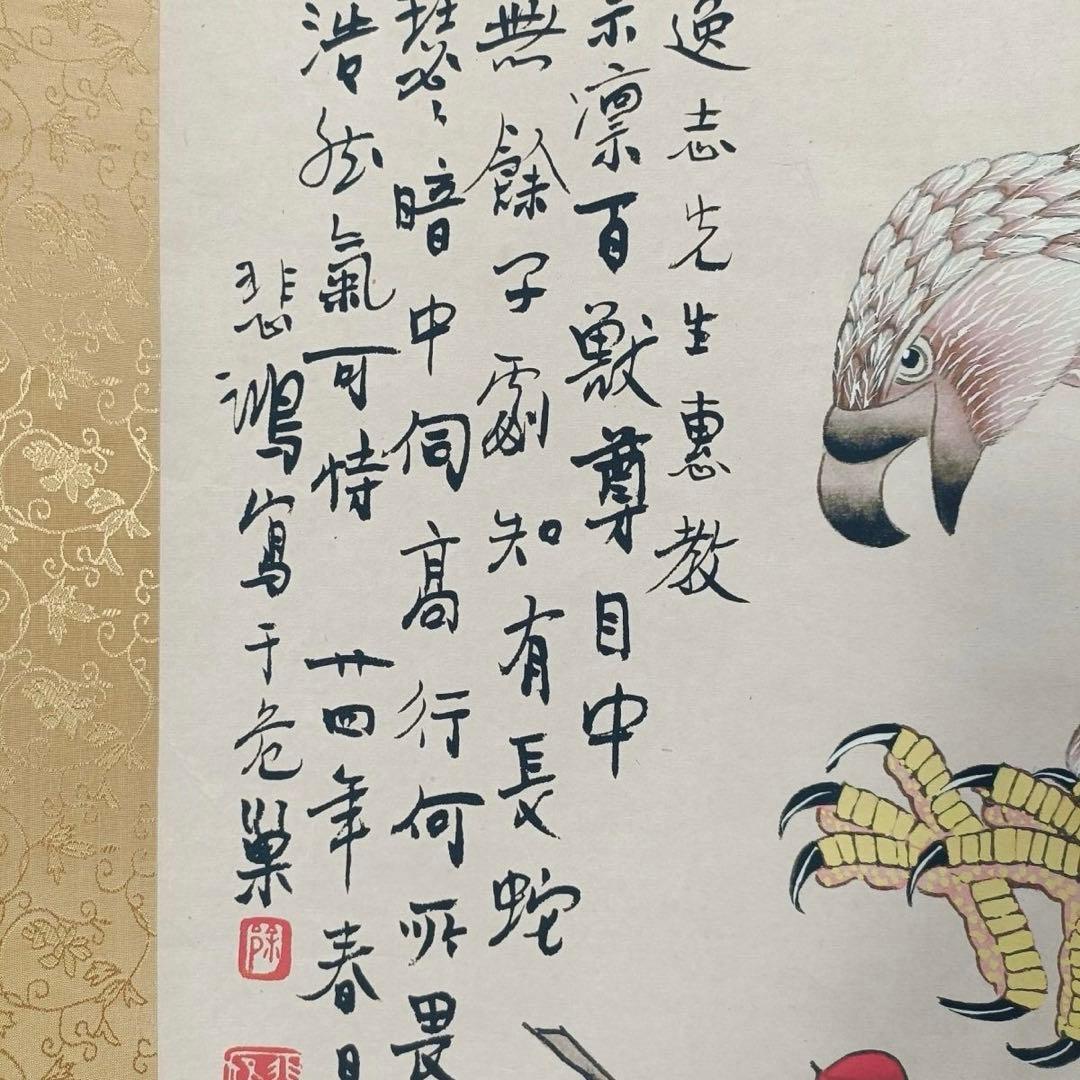 逸志先生惠教
示凛百獸尊目中
無餘子劇知有長蛇
瑟々暗中伺高行何所畏
浩然氣可恃 廿四年春日
悲鴻寫于危巢
徐
悲